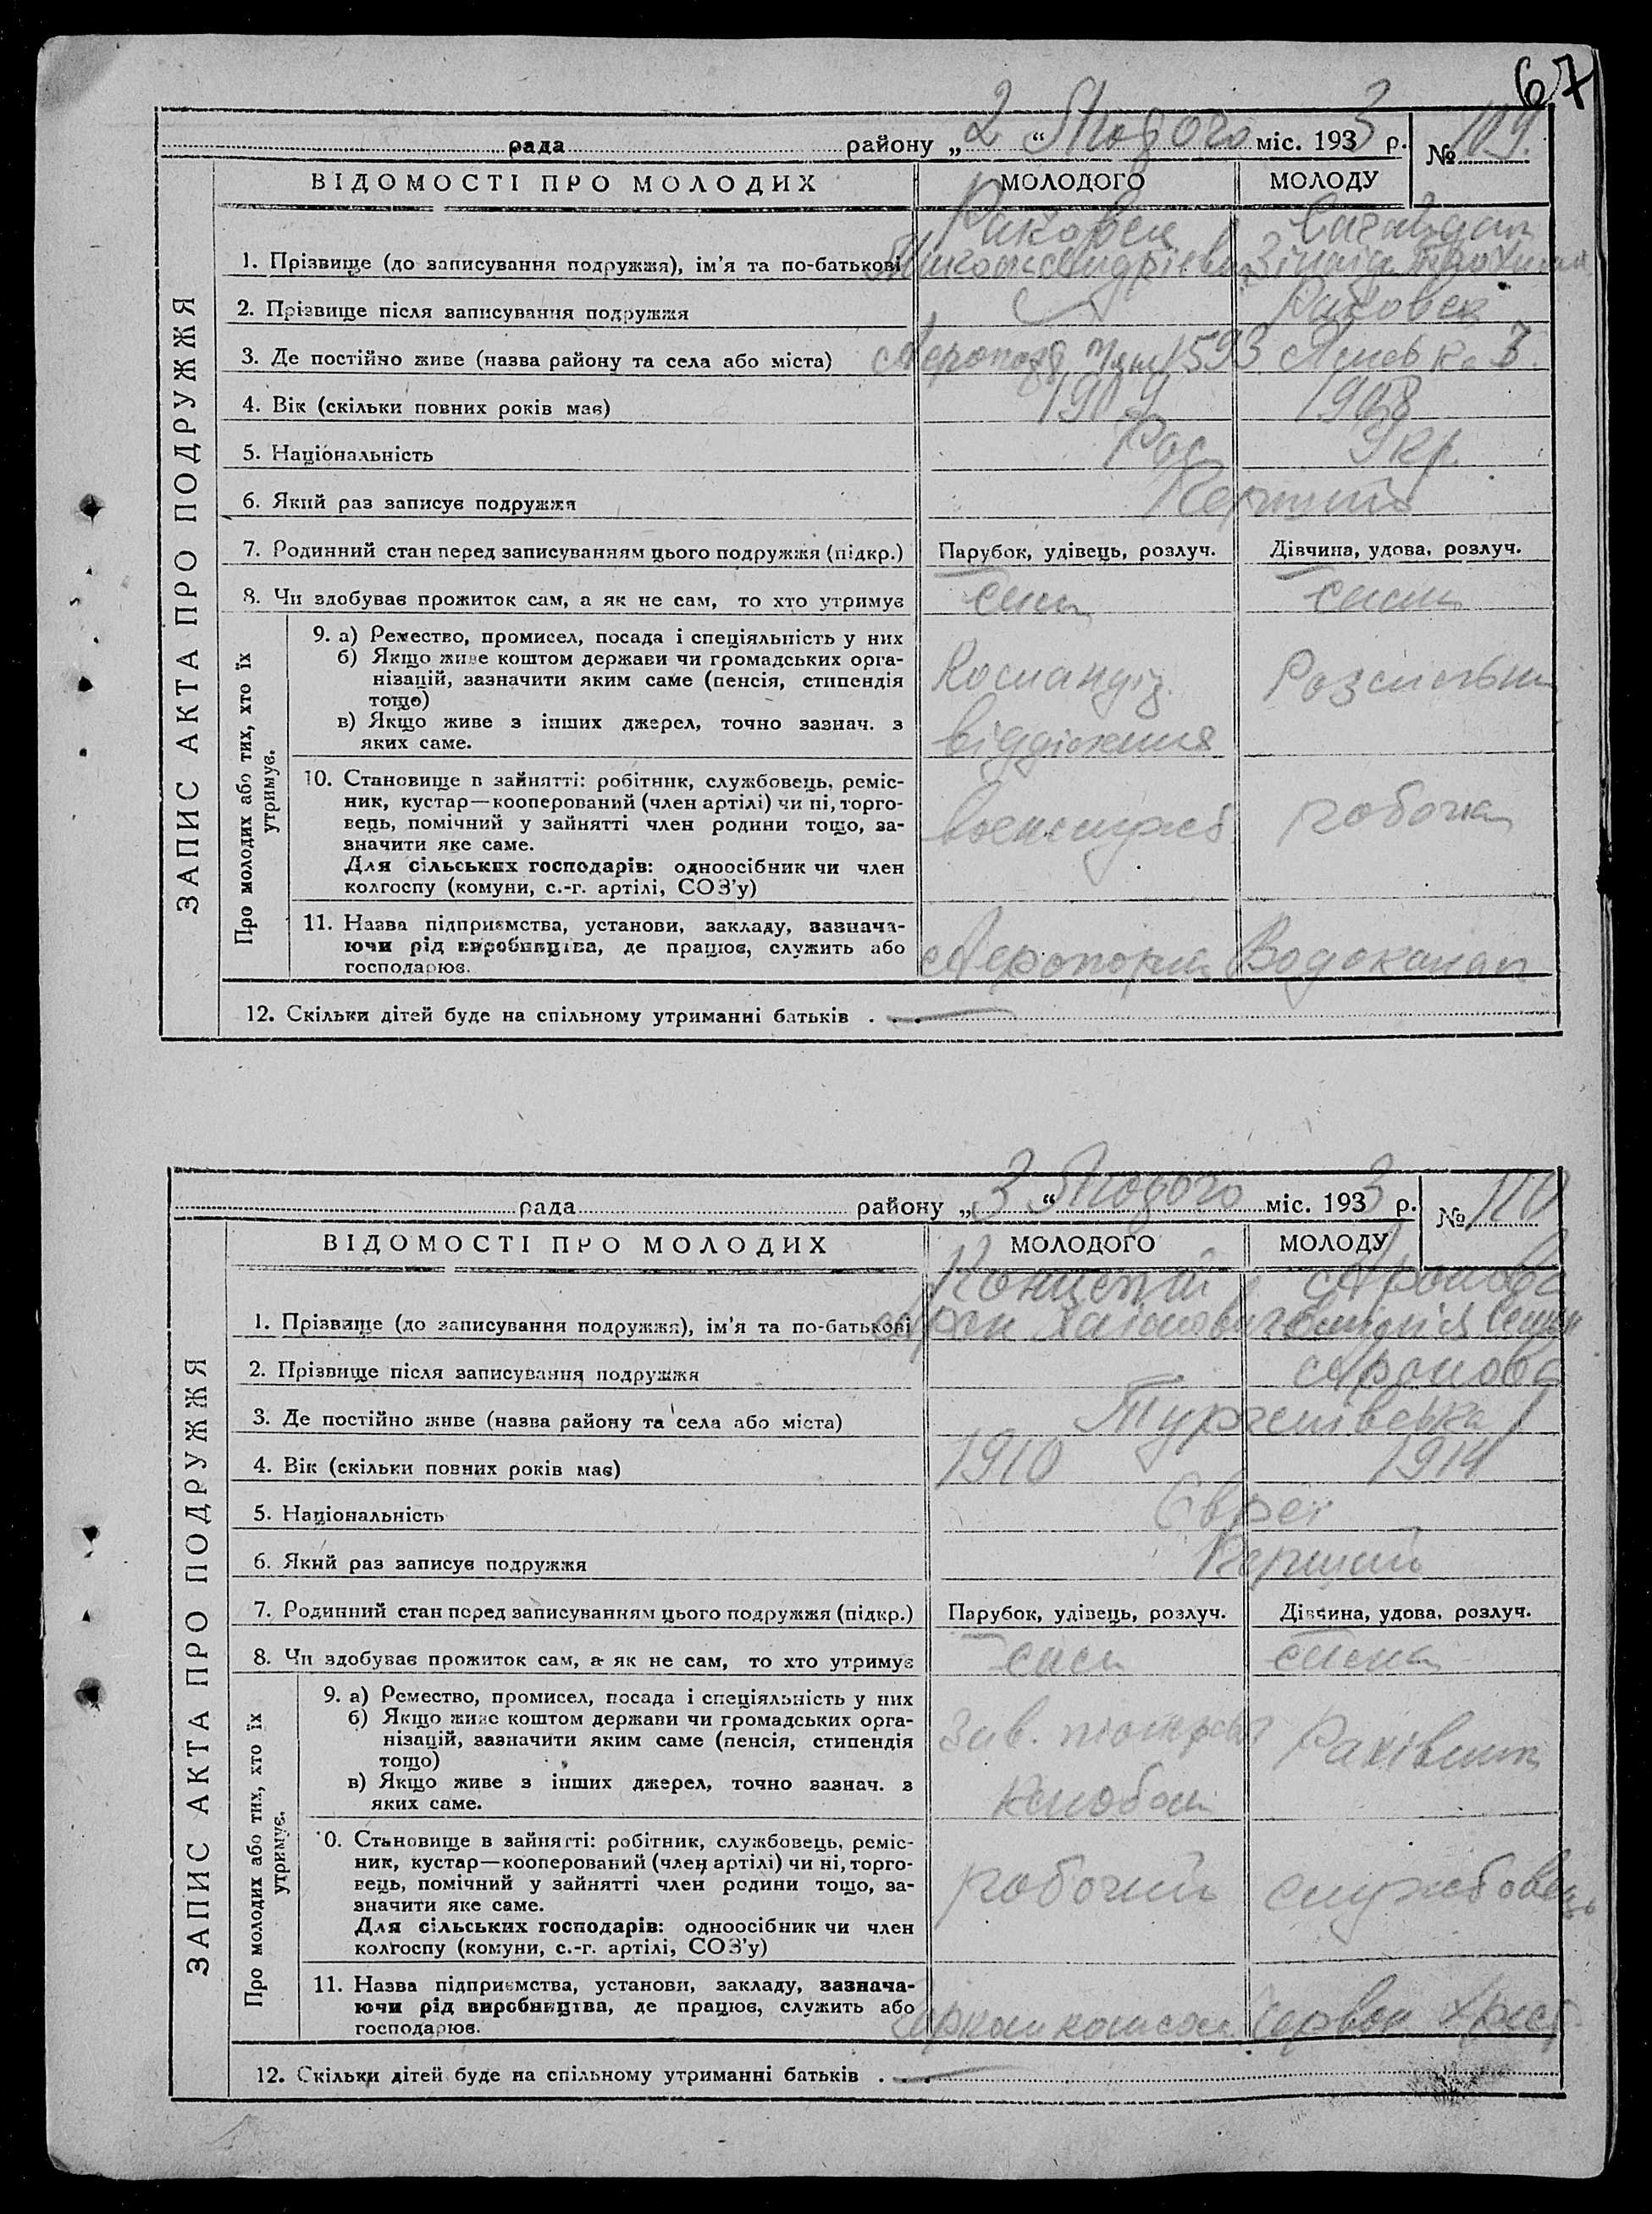 67
рада району „2“ Лютого міс. 1933 р. № 109.
ВІДОМОСТІ ПРО МОЛОДИХ МОЛОДОГО МОЛОДУ
ЗАПИС АКТА ПРО ПОДРУЖЖЯ
Раковец
1. Прізвище (до записування подружжя), ім’я та по-батькові Зінаіда
2. Прізвище після записування подружжя Раковец
3. Де постійно живе (назва району та села або міста) 593
4. Вік (скільки повних років має) 1904 1908
5. Національність Рос Укр.
6. Який раз записує подружжя Перший
7. Родинний стан перед записуванням цього подружжя (підкр.) Парубок, удівець, розлуч. Дівчина, удова, розлуч.
8. Чи здобуває прожиток сам, а як не сам, то хто утримує сам сама
Про молодих або тих, хто їх
утримує.
9. а) Ремество, промисел, посада і спеціяльність у них
б) Якщо живе коштом держави чи громадських орга-
нізацій, зазначити яким саме (пенсія, стипендія
тощо)
в) Якщо живе з інших джерел, точно зазнач. з
яких саме.
Командір
відділення
Розсильна
10. Становище в зайнятті: робітник, службовець, реміс-
ник, кустар—кооперований (член артілі) чи ні, торго-
вець, помічний у зайнятті член родини тощо, за-
значити яке саме.
Для сільських господарів: одноосібник чи член
колгоспу (комуни, с.-г. артілі, СОЗ’у)
военслужб робоча
11. Назва підприємства, установи, закладу, зазнача-
ючи рід виробництва, де працює, служить або
господарює.
Аеропорт Водоканал
12. Скільки дітей буде на спільному утриманні батьків . . . —
рада району „3“ Лютого міс. 1933 р. № 110
ВІДОМОСТІ ПРО МОЛОДИХ МОЛОДОГО МОЛОДУ
ЗАПИС АКТА ПРО ПОДРУЖЖЯ
Аронова
1. Прізвище (до записування подружжя), ім’я та по-батькові Арон Хаімович
2. Прізвище після записування подружжя Аронова
3. Де постійно живе (назва району та села або міста) Тургенівська
4. Вік (скільки повних років має) 1910 1914
5. Національність Євреї
6. Який раз записує подружжя Перший
7. Родинний стан перед записуванням цього подружжя (підкр.) Парубок, удівець, розлуч. Дівчина, удова, розлуч.
8. Чи здобуває прожиток сам, а як не сам, то хто утримує сам сама
Про молодих або тих, хто їх
утримує.
9. а) Ремество, промисел, посада і спеціяльність у них
б) Якщо живе коштом держави чи громадських орга-
нізацій, зазначити яким саме (пенсія, стипендія
тощо)
в) Якщо живе з інших джерел, точно зазнач. з
яких саме.
Зав.
Рахівник
10. Становище в зайнятті: робітник, службовець, реміс-
ник, кустар—кооперований (член артілі) чи ні, торго-
вець, помічний у зайнятті член родини тощо, за-
значити яке саме.
Для сільських господарів: одноосібник чи член
колгоспу (комуни, с.-г. артілі, СОЗ’у)
робочий службовець
11. Назва підприємства, установи, закладу, зазнача-
ючи рід виробництва, де працює, служить або
господарює.
Червон Хрест
12. Скільки дітей буде на спільному утриманні батьків . . . —